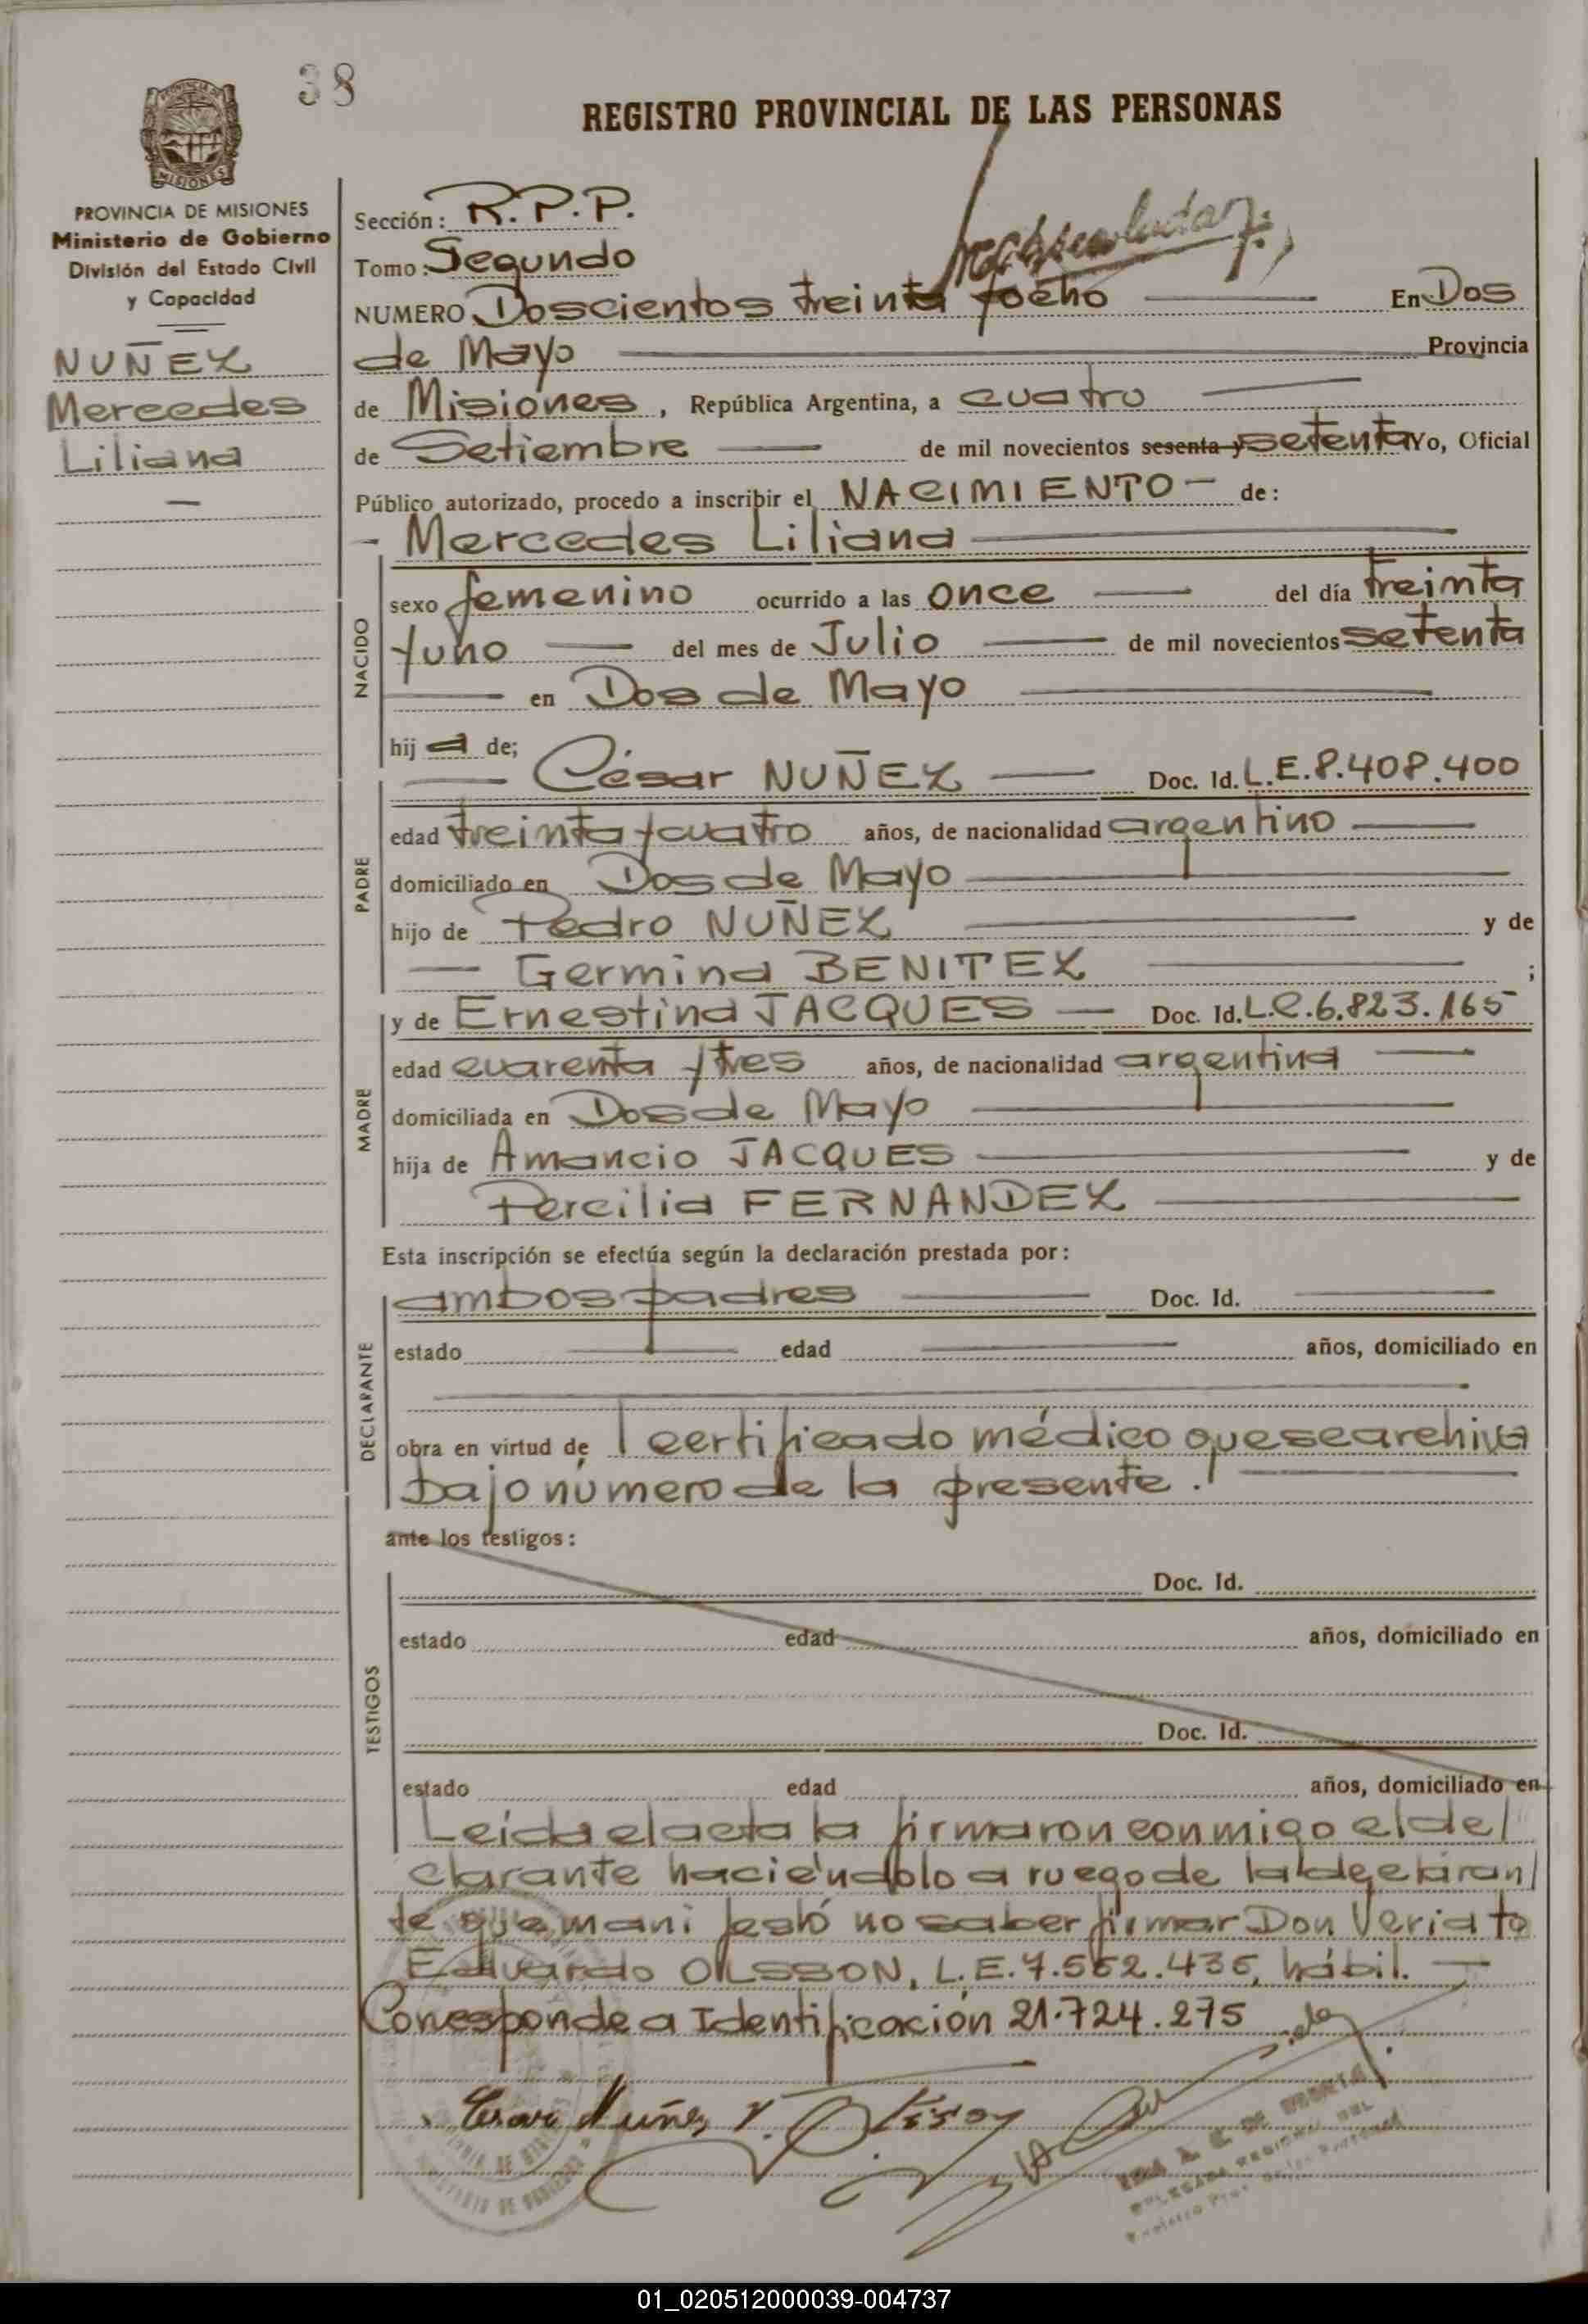 38
REGISTRO PROVINCIAL DE LAS PERSONAS
MISIONES
PROVINCIA DE MISIONES
Ministerio de Gobierno
División del Estado Civil
y Capacidad
NUÑEZ
Mercedes
Liliana
Sección: R.P.P.
Tomo: Segundo
NUMERO Doscientos treinta y ocho En Dos
de Mayo Provincia
de Misiones, República Argentina, a cuatro
de Setiembre de mil novecientos sesenta y setenta Yo, Oficial
Público autorizado, procedo a inscribir el NACIMIENTO de:
Mercedes Liliana
NACIDO
sexo femenino ocurrido a las once del día treinta
y uno del mes de Julio de mil novecientos setenta
en Dos de Mayo
hija de;
César NUÑEZ Doc. Id. L.E.8.408.400
PADRE
edad treinta y cuatro años, de nacionalidad argentino
domiciliado en Dos de Mayo
hijo de Pedro NUÑEZ y de
Germina BENITEZ ;
y de Ernestina JACQUES Doc. Id. L.C.6.823.165
MADRE
edad cuarenta y tres años, de nacionalidad argentina
domiciliada en Dos de Mayo
hija de Amancio JACQUES y de
Percilia FERNANDEZ
Esta inscripción se efectúa según la declaración prestada por:
DECLARANTE
ambos padres Doc. Id.
estado edad años, domiciliado en
obra en virtud de 1 certificado médico que se archiva
bajo número de la presente.
ante los testigos:
TESTIGOS
Doc. Id.
estado edad años, domiciliado en
Doc. Id.
estado edad años, domiciliado en
Leída el acta la firmaron conmigo el de/
clarante haciéndolo a ruego de la declaran/
te que manifestó no saber firmar Don Veriato
Eduardo OLSSON, L.E.7.552.435, hábil.
Corresponde a Identificación 21.724.275
Cesar Nuñez V. Olsson
01_020512000039-004737